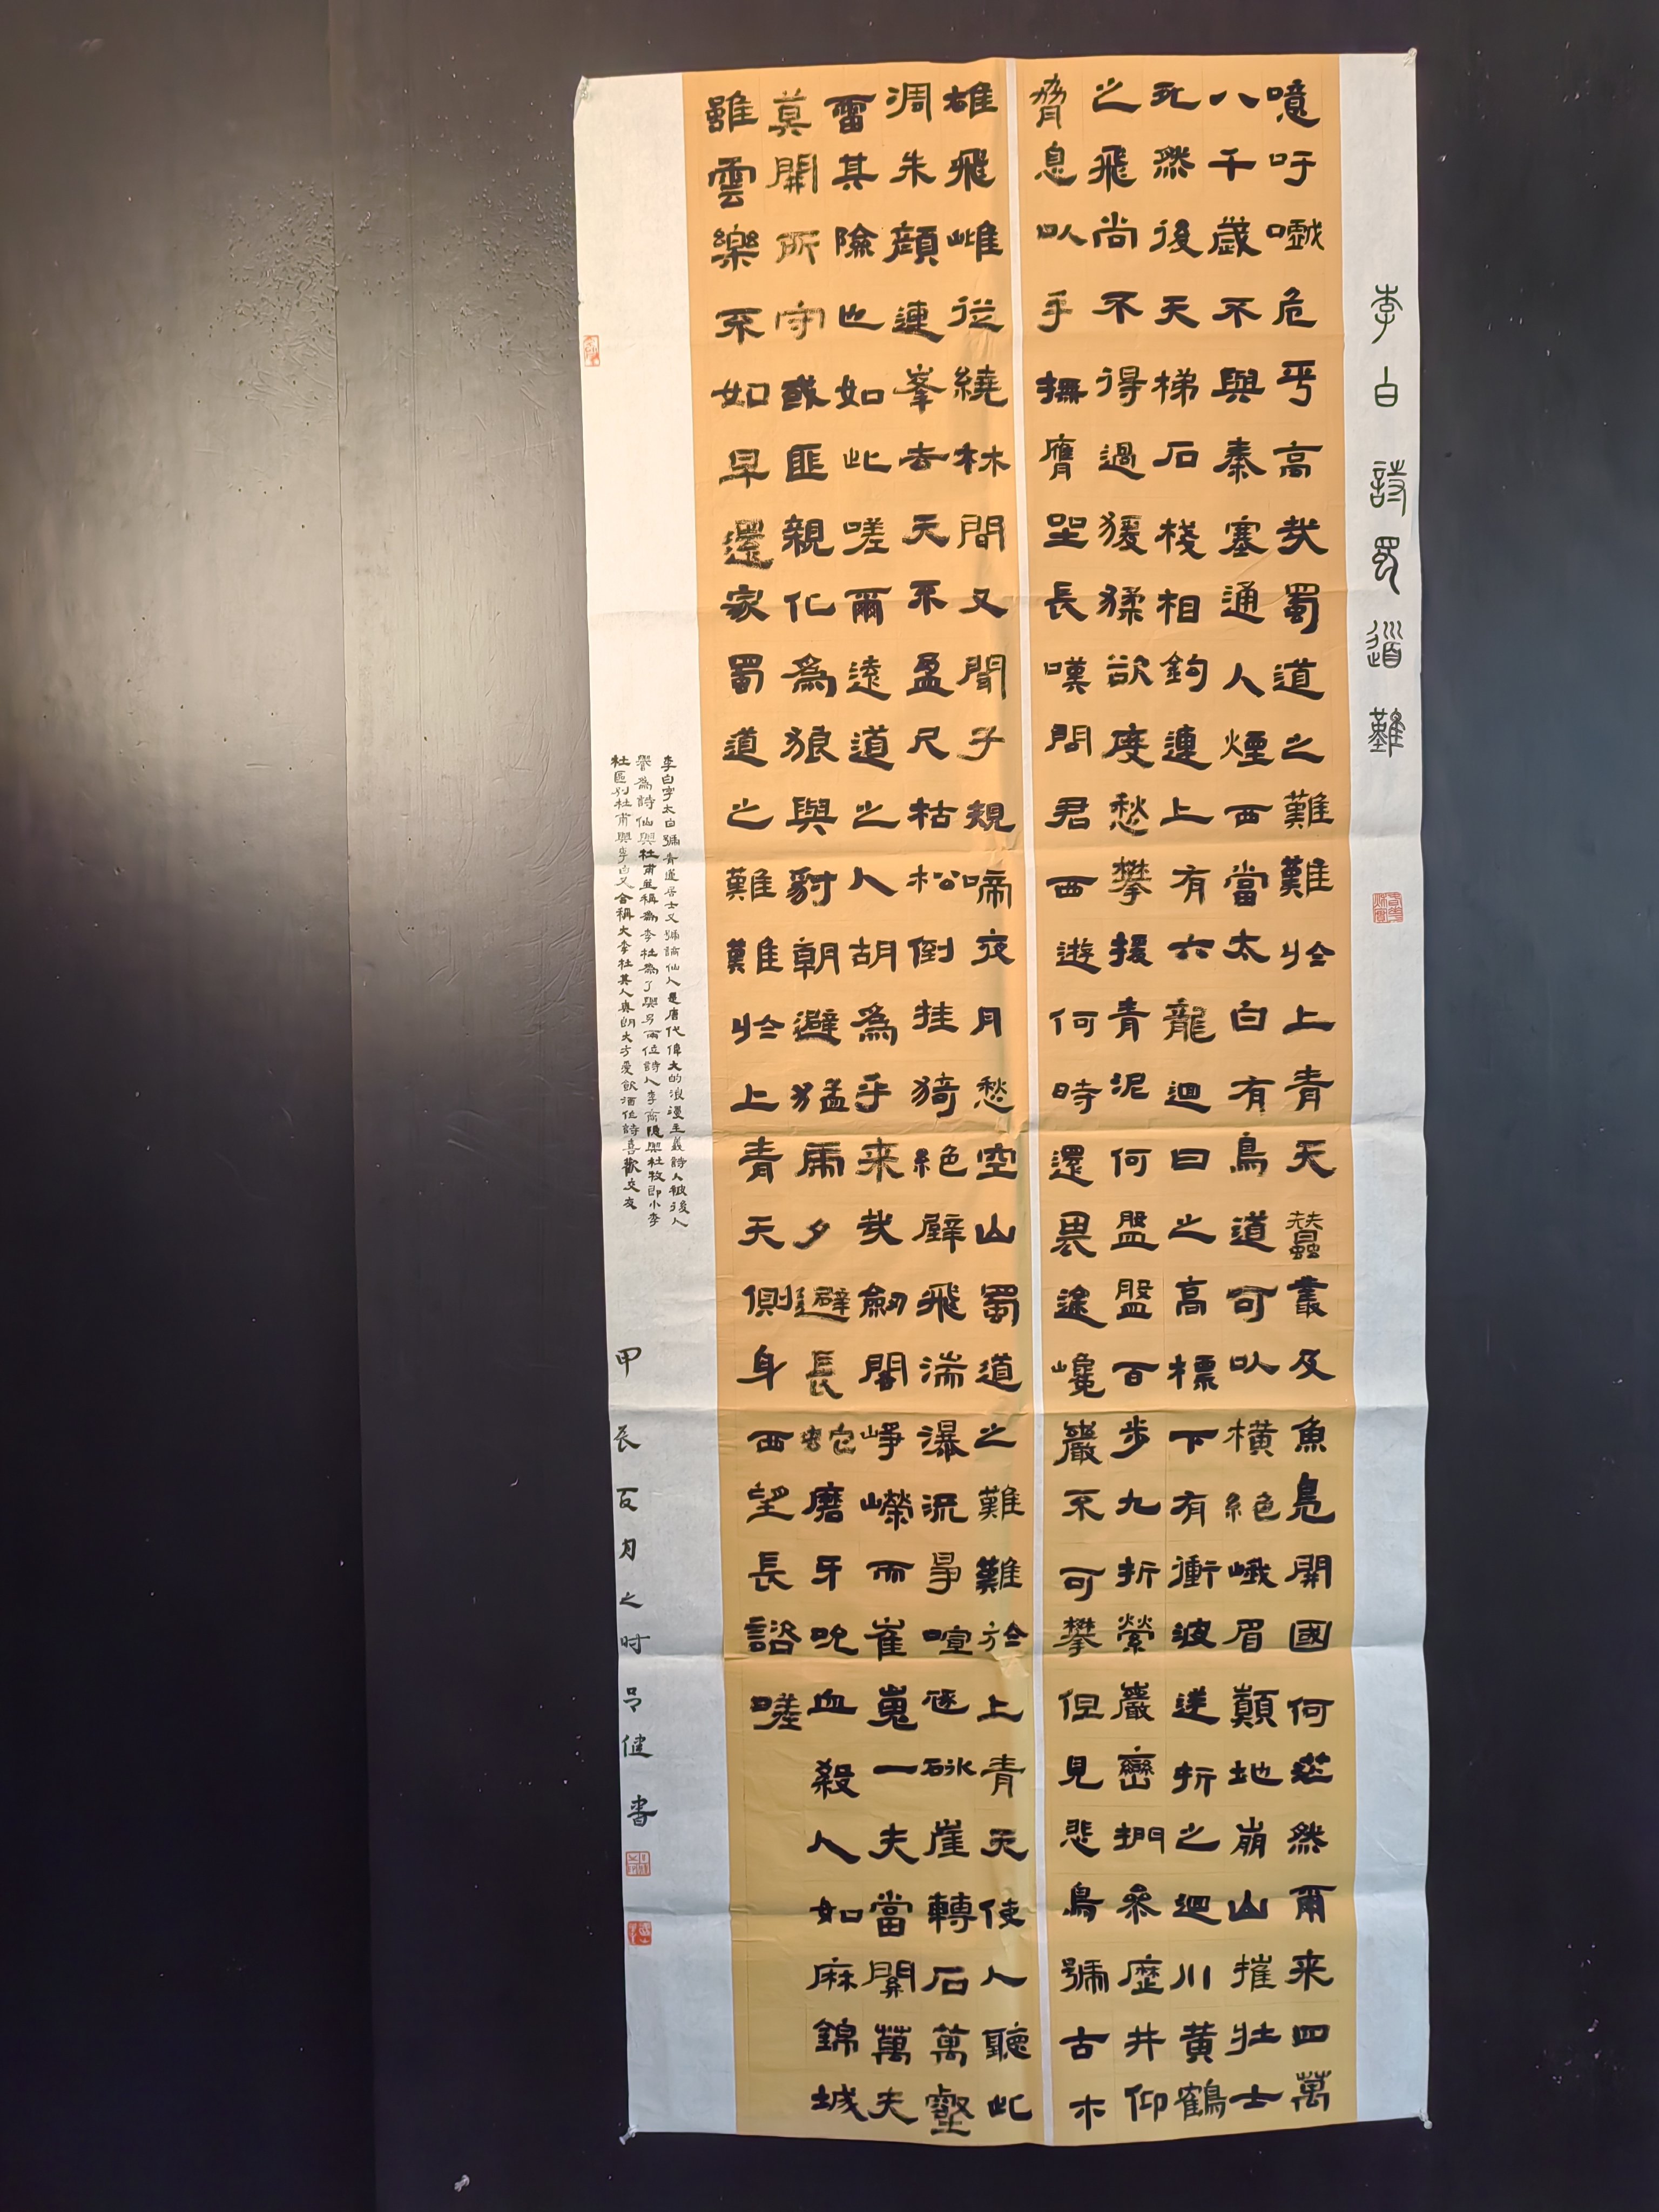 李白詩蜀道難
噫吁嚱危乎高哉蜀道之難難於上青天蠶叢及魚鳧開國何茫然爾来四萬
八千歲不與秦塞通人煙西當太白有鳥道可以橫絕峨眉顛地崩山摧壯士
死然後天梯石棧相鉤連上有六龍迴日之高標下有衝波逆折之迴川黃鶴
之飛尚不得過猨猱欲度愁攀援青泥何盤盤百步九折縈巖巒捫參歷井仰
脅息以手撫膺坐長嘆問君西遊何時還畏途巉巖不可攀但見悲鳥號古木
雄飛雌從繞林間又聞子規啼夜月愁空山蜀道之難難於上青天使人聽此
凋朱顏連峯去天不盈尺枯松倒挂猗絕壁飛湍瀑流爭喧豗砯崖轉石萬壑
雷其險也如此嗟爾遠道之人胡為乎来哉劒閣崢嶸而崔嵬一夫當關萬夫
莫開所守或匪親化為狼與豺朝避猛虎夕避長蛇磨牙吮血殺人如麻錦城
雖雲樂不如早還家蜀道之難難於上青天側身西望長諮嗟
李白字太白號青蓮居士又號謫仙人是唐代偉大的浪漫主義詩人被後人
譽為詩仙與杜甫並稱為李杜為了與另兩位詩人李商隱與杜牧即小李
杜區別杜甫與李白又合稱大李杜其人爽朗大方愛飲酒作詩喜歡交友
甲辰夏月之时吕健書